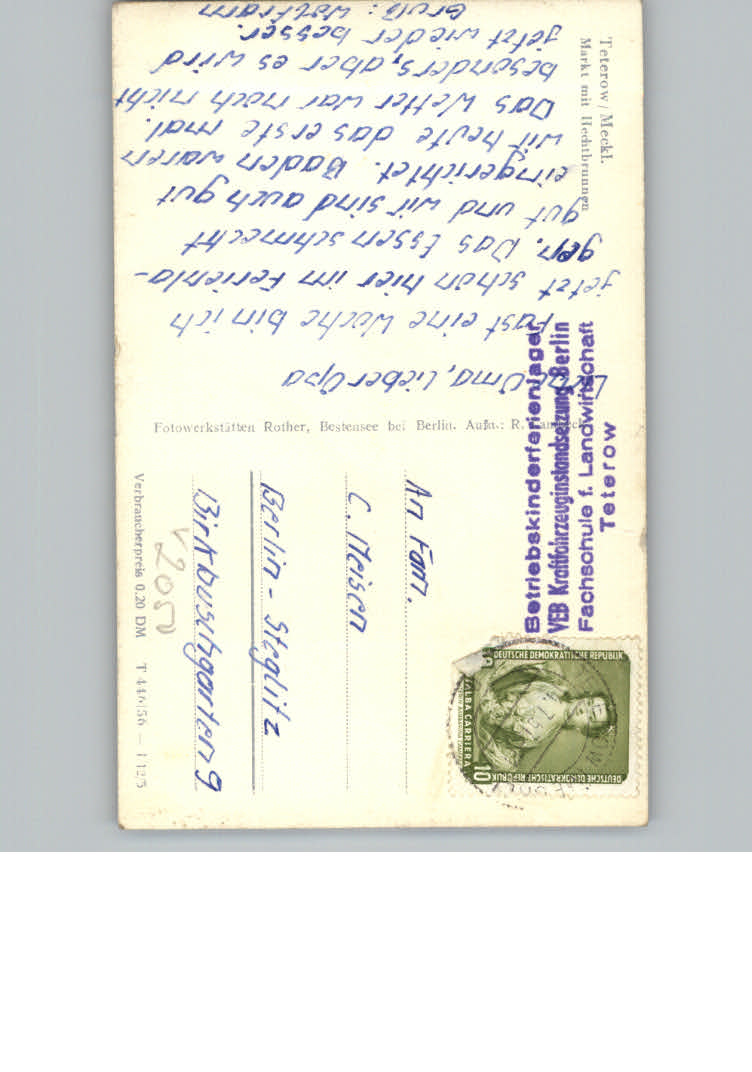 Teterow / Meckl.
Markt mit Hechtbrunnen
Liebe Oma, lieber Opa
Fast eine Woche bin ich
jetzt schon hier im Ferienla-
ger. Das Essen schmeckt
gut und wir sind auch gut
eingerichtet. Baden waren
wir heute das erste mal.
Das Wetter war noch nicht
besonders, aber es wird
jetzt wieder besser.
Gruß: Wolfram
Fotowerkstätten Rother, Bestensee bei Berlin. Aufn.: R.
Betriebskinderferienlager
VEB Kraftfahrzeuginstandsetzung Berlin
Fachschule f. Landwirtschaft
Teterow
DEUTSCHE DEMOKRATISCHE REPUBLIK
DEUTSCHE DEMOKRATISCHE REPUBLIK
ROSALBA CARRIERA
10
An Fam.
C. Meisen
Berlin - Steglitz
Birkbuschgarten 9
Verbraucherpreis 0.20 DM T 446/56 –